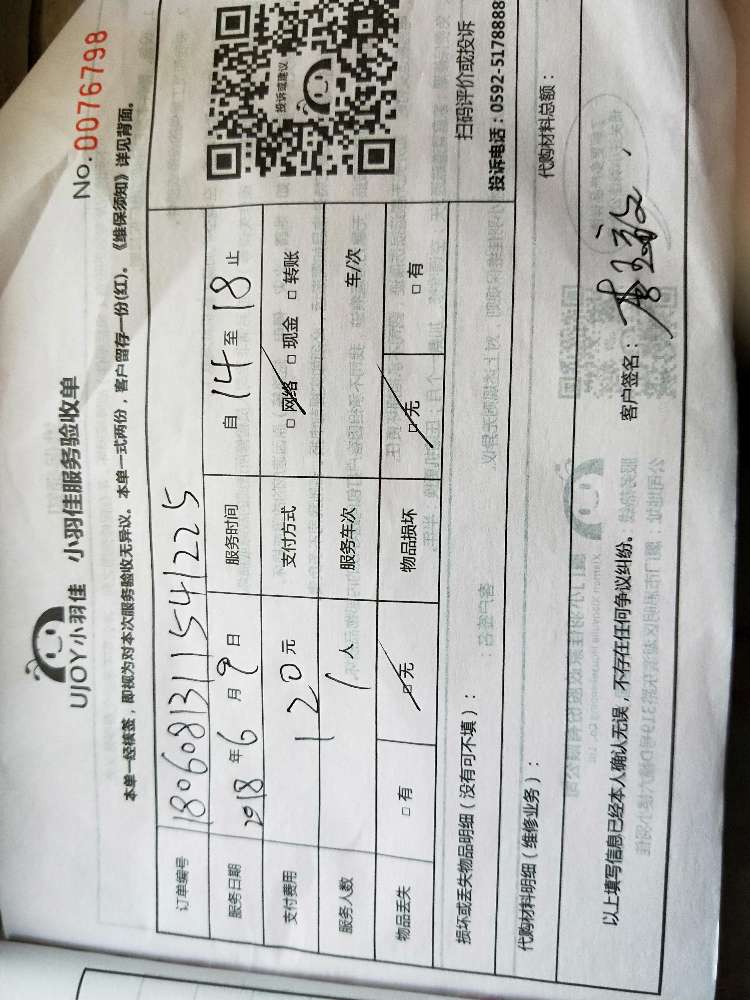 UJOY小羽佳 小羽佳服务验收单
No.0076798
本单一经核签，即视为对本次服务验收无异议。本单一式两份，客户留存一份(红)。《维保须知》详见背面。
订单编号 1806081311541225
服务日期 2018年6月9日 服务时间 自14至18止
支付费用 120元 支付方式 □网络 □现金 □转账
服务人数 1人 服务车次 车/次
物品丢失 □有 □无 物品损坏 □无 □有
投诉或建议
扫码评价或投诉
投诉电话：0592-5178888
损坏或丢失物品明细（没有可不填）：
代购材料明细（维修业务）：
代购材料总额：
以上填写信息已经本人确认无误，不存在任何争议纠纷。
客户签名：